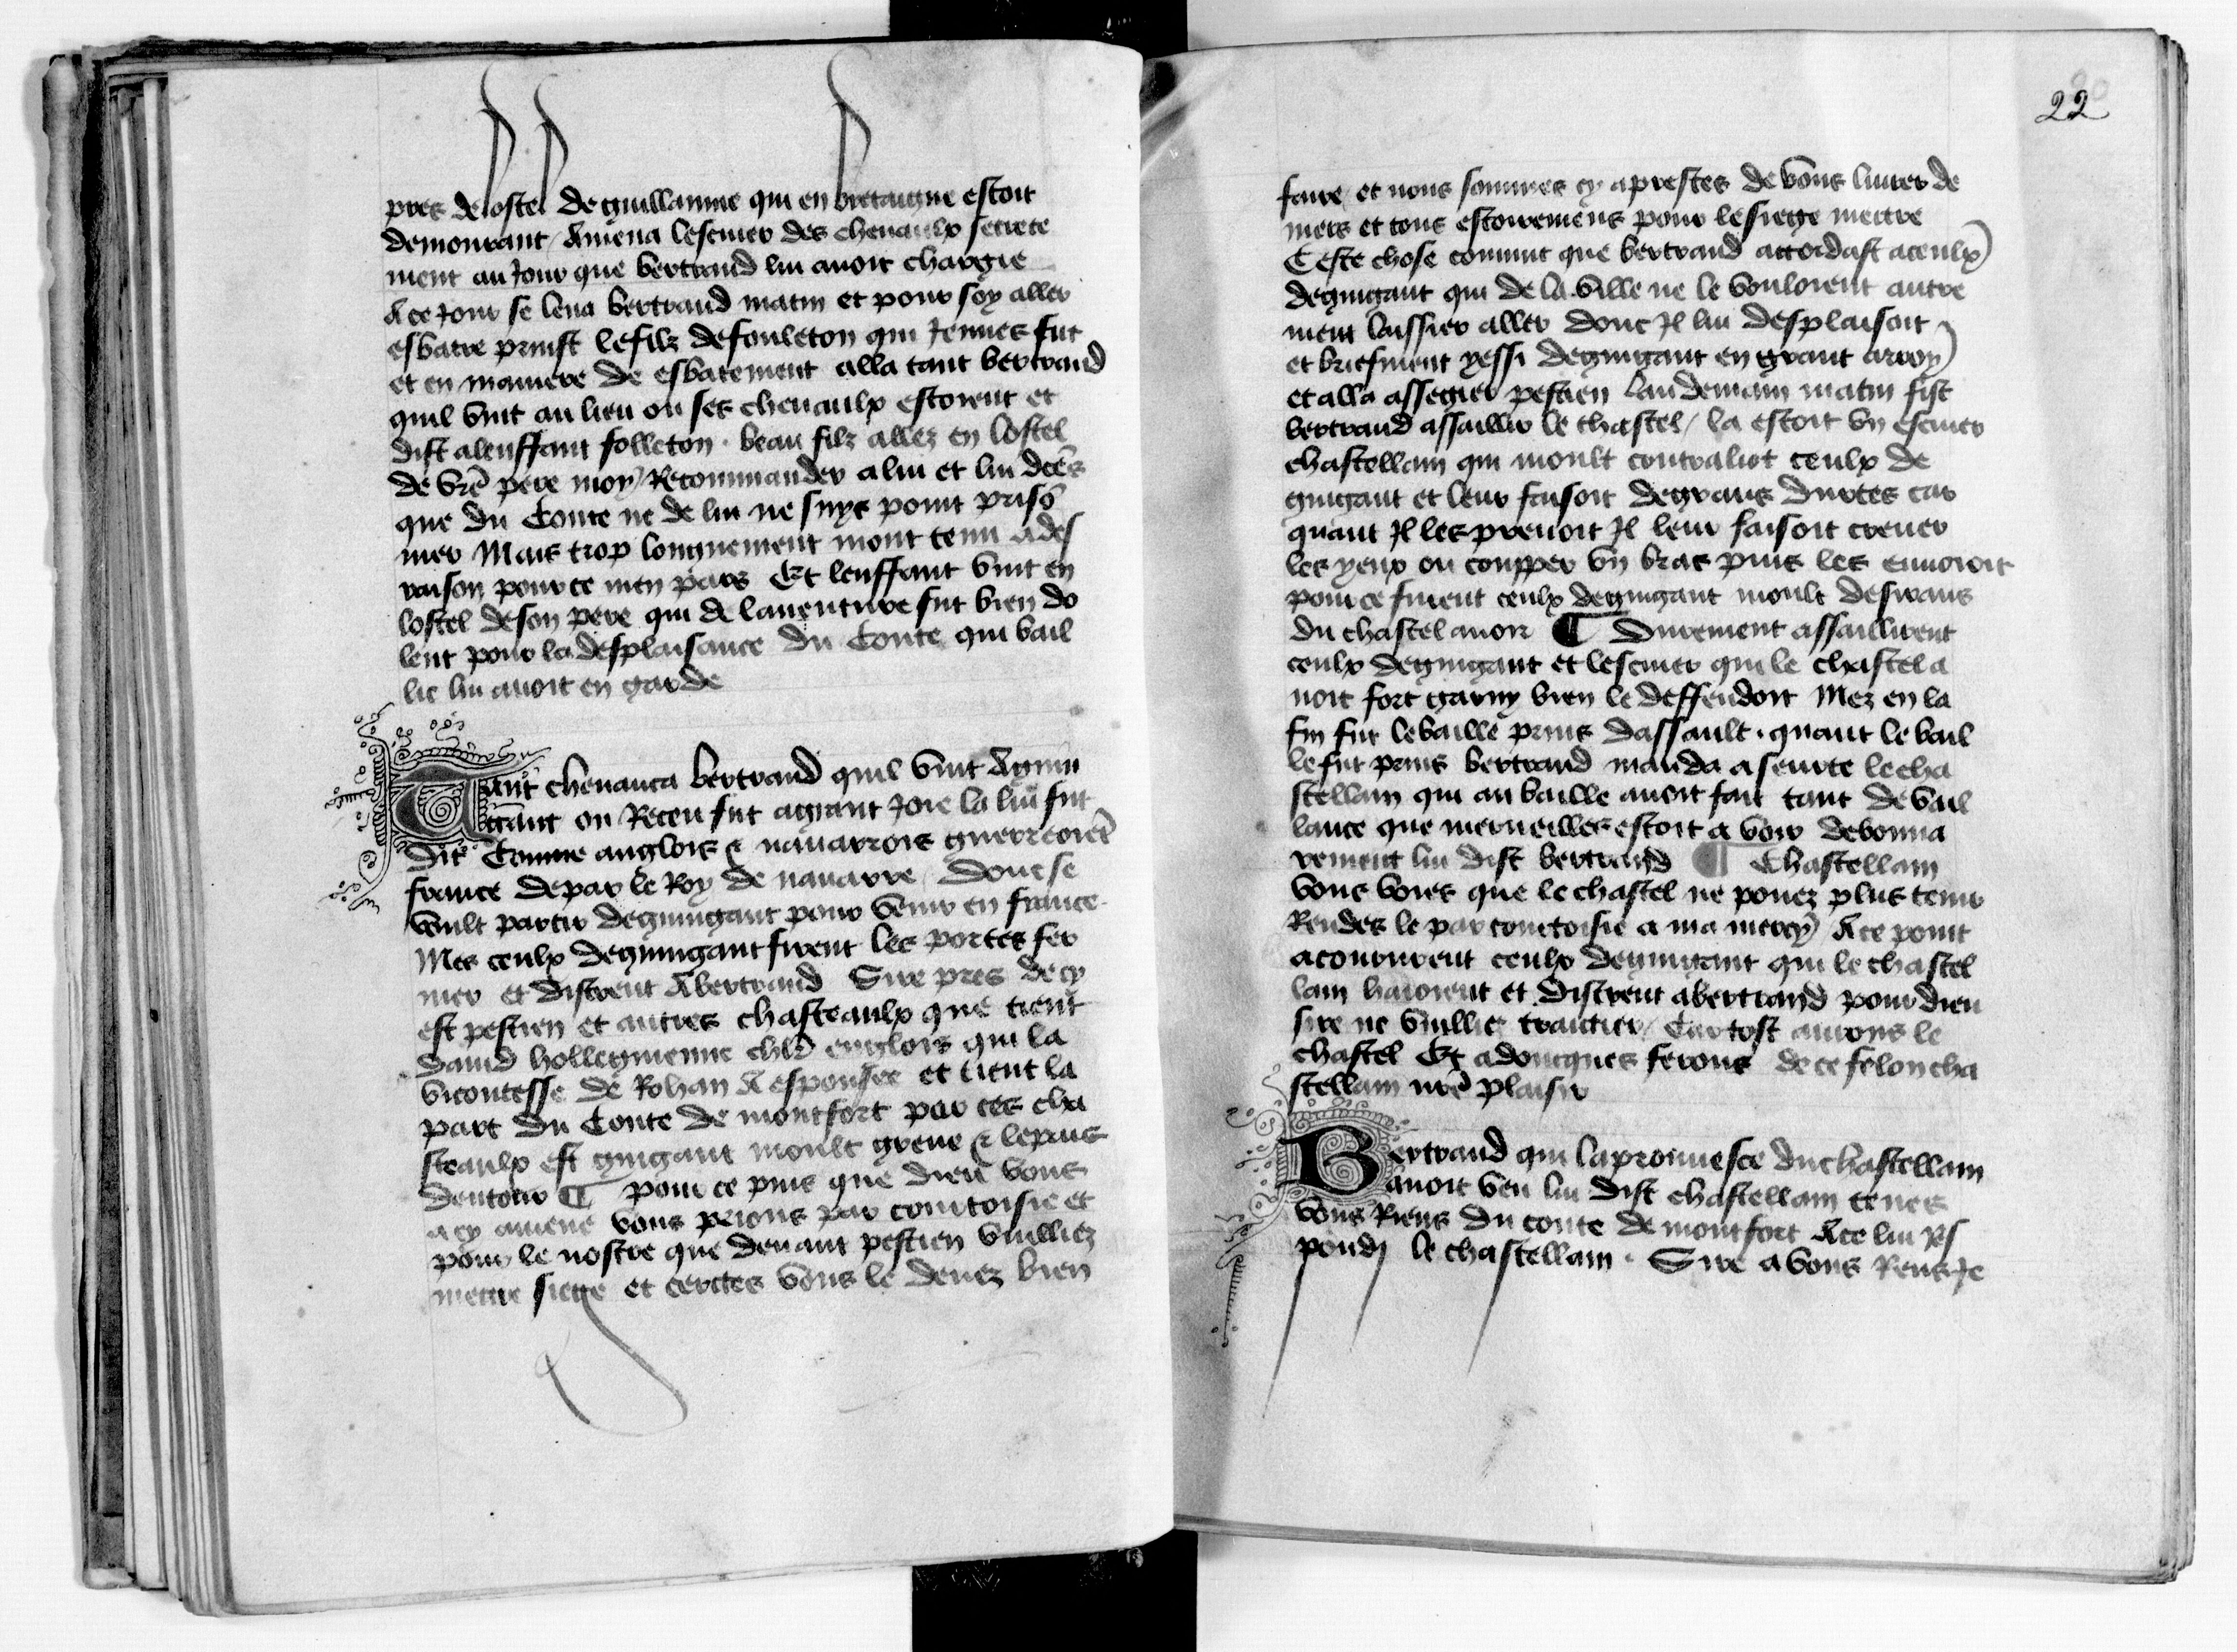 pres de lostel de guillaume qui en bretaigne estoit
demourant / Amena lescuier des cheuaulx secrete
ment au Jour que bertrand lui auoit chargie
A ce Jour se leua bertrand matin et pour soy aller
esbatre prinst le filz de fouleton qui Jeunes fut
et en maniere de esbatement alla tant bertrand
quil vint au lieu ou ses cheuaulx estoient et
dist alenffant folleton . beau filz allez en lostel
de vrē pere moy Recommander a lui et lui dcēs
que du Conte ne de lui ne suys point prisō
nier Mais trop longuement mont tenu a des
raison pource men pars Et lenffant vint en
lostel de son pere qui de lauenture fut bien do
lent pour la desplaisance du Conte qui bail
lie lui auoit en garde
Tant cheuauca bertrand quil vint A guin
gant ou Receu fut a grant Joie la lui fut
dit Comme anglois & nauarrois guerreoiēt
france de par le Roy de nauarre / Dont se
voult partir de guingant pour venir en france
Mes ceulx de guingant firent les portes fer
mer et distrent A bertrand Sire pres de cy
est pestien et autres chasteaulx que tient
dauid hollegrienne chlr̄ englois qui la
vicontesse de Rohan A espousee et tient la
part du Conte de montfort par ces cha
steaulx est guigant moult greue & le pais
dentour ¶ pour ce puis que dieu vous
a cy amene vous prions par courtoisie et
pour le nostre que deuant pestien vuilliez
mettre siege et certes vous le deuez bien
22
faire / et nous sommes cy aprestes de vous liurer de
niers et tous estoremens pour le siege mettre
Ceste chose conuint que bertrand accordast a ceulx
de guigant qui de la ville ne le vouloient autre
ment laissier aller dont Jl lui desplaisoit
et briefment yessi de guigant en grant arroy
et alla assegier pestien Landemain matin fist
bertrand assaillir le chastel / la estoit vn escuier
chastellain qui moult contraliot ceulx de
guigant et leur faisoit de grans durtes car
quant Jl les prenoit Jl leur faisoit creuer
les yeux ou coupper vn bras puis les enuoioit
pour ce furent ceulx de guigant moult desirans
du chastel auoir ¶ Durement assaillirent
ceulx de guigant et lescuier qui le chastel a
uoit fort garny bien le deffendoit Mez en la
fin fut le baille prins dassault . quant le bail
le fut prins bertrand manda a seurte le cha
stellain qui au baille auoit fait tant de vail
lance que merueilles estoit a voir debonna
rement lui dist bertrand ¶ Chastellain
vous voies que le chastel ne pouez plus tenir
Rendes le par courtoisie a ma mercy A ce point
acoururent ceulx de guigant qui le chastel
lain haioient et distrent a bertrand pour dieu
sire ne vuilliez traictier / Car tost aurons le
chastel Et adoncques ferons de ce felon cha
stellain nrē plaisir
Bertrand qui la prouuesce du chastellain
auoit veu lui dist chastellain tenes
vous Riens du conte de montfort A ce lui Rs
pondi le chastellain . Sire a vous Rens Je